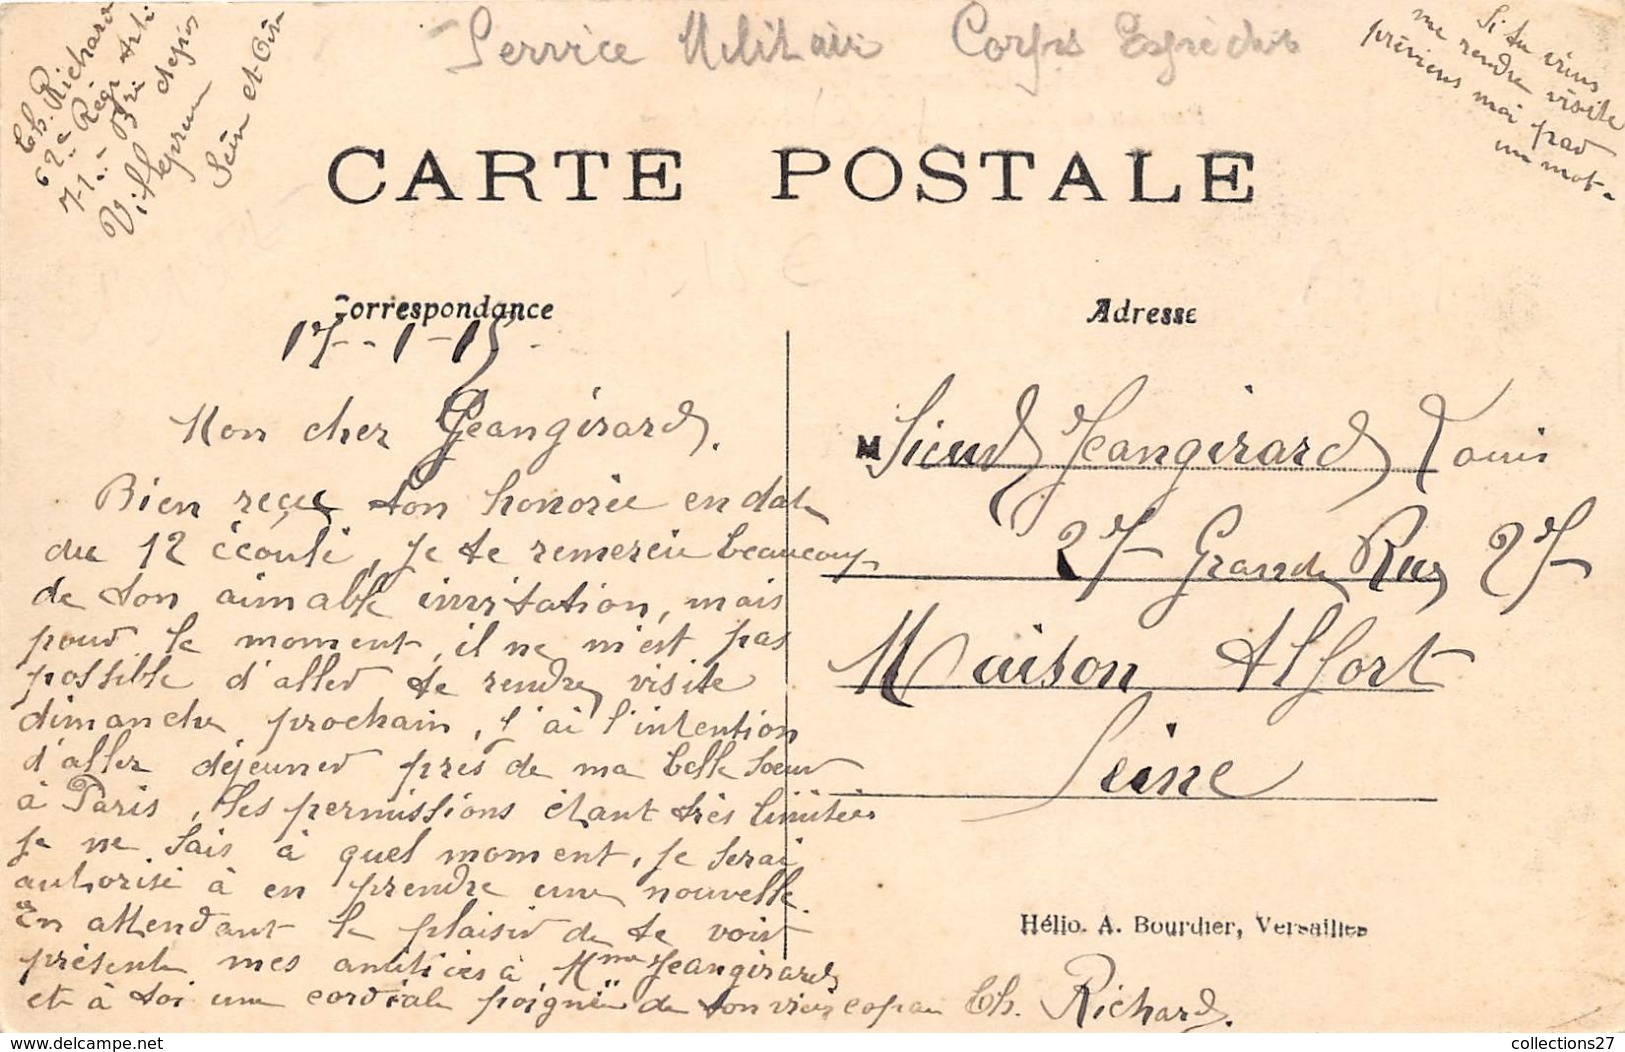 Service Militaire Corps Expéditre
Ch. Richard
62e Régt Arti
71e Bri
Villepreux
Seine et Oise
Si tu viens
me rendre visite
préviens moi par
un mot.
CARTE POSTALE
Correspondance
17-1-15
Mon cher Jeangirard.
Bien reçue ton honorée en date
du 12 écoulé, je te remercie beaucoup
de ton aimable invitation, mais
pour le moment, il ne m'est pas
possible d'aller te rendre visite
dimanche prochain, j'ai l'intention
d'aller déjeuner près de ma belle soeur
à Paris, les permissions étant très limitées
je ne sais à quel moment, je serai
autorisé à en prendre une nouvelle.
En attendant le plaisir de te voir
présente mes amitiés à Mme Jeangirard
et à toi une cordiale poignée de ton vieux copain Ch. Richard.
Adresse
Msieur Jeangirard Louis
27 Grande Rue 27
Maison Alfort
Seine
Hélio. A. Bourdier, Versailles
collections27